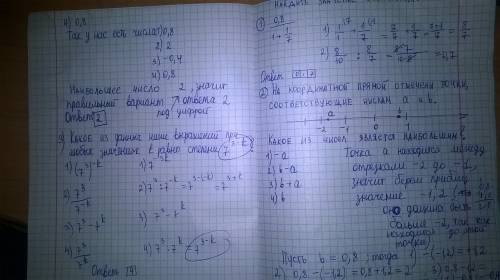 4) 0,8
Так у нас есть числа: 1) 0,8
2) 2
3) -0,4
4) 0,8
Наибольшее число 2, значит
правильный вариант ответа 2
под цифрой
Ответ 2
3) Какое из данных ниже выражений при
любых значениях k равно степени 7^{3-k}
1) (7^3)^{-k}
2) 7^3/7^{-k}
3) 7^3 - 7^k
4) 7^3/7^k
2) 7^3 : 7^{-k} = 7^{3-(-k)} = 7^{3+k}
3) 7^3 - 7^k
4) 7^3 : 7^k = 7^{3-k}
Ответ 4
1) 0,8/(1+1/7)
Ответ 0,7
2) На координатной прямой отмечены точки,
соответствующие числам a и b.
a
-2 -1 0 2
Какое из чисел является наибольшим
1) -a
2) b-a
3) b+a
4) b
Точка a находится между
отрезками -2 до -1,
значит берем пример
значение -1,2
она должна быть
больше -2, так как
находится до этой
точки
Пусть b = 0,8, тогда 1) -(-1,2) = +1,2
2) 0,8-(-1,2) = 0,8+1,2 = 2